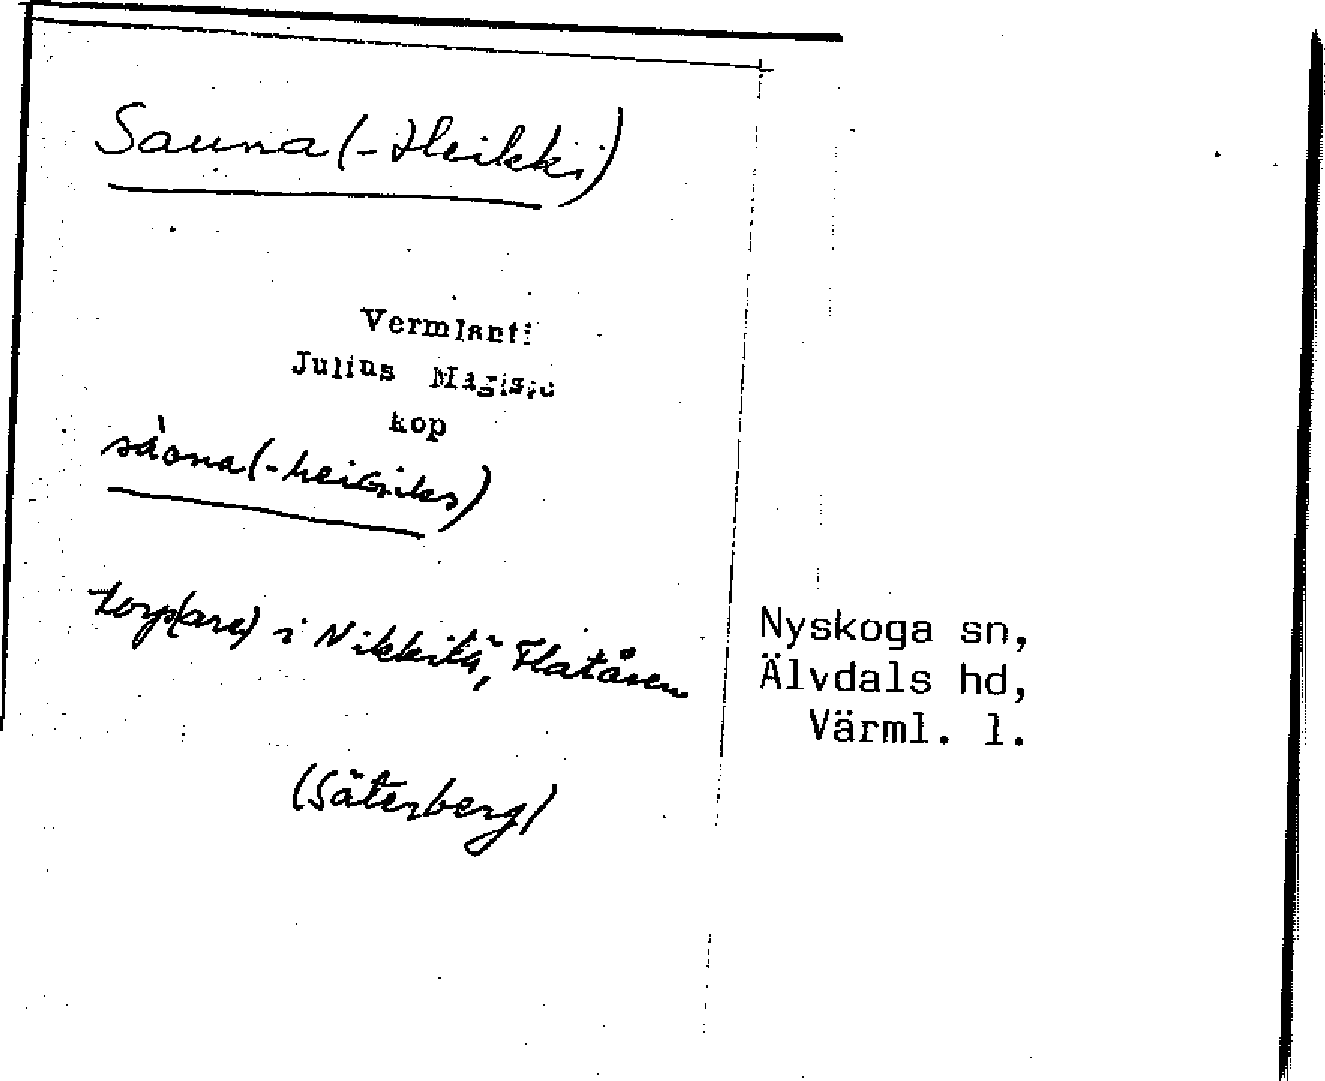 Sauna(-Heikki)
Vermlanti
Julius Mägiste
kop
torp(are) i Nikkilä, Flatåsen
(Säterberg)
Nyskoga sn,
Älvdals hd,
Värml. l.